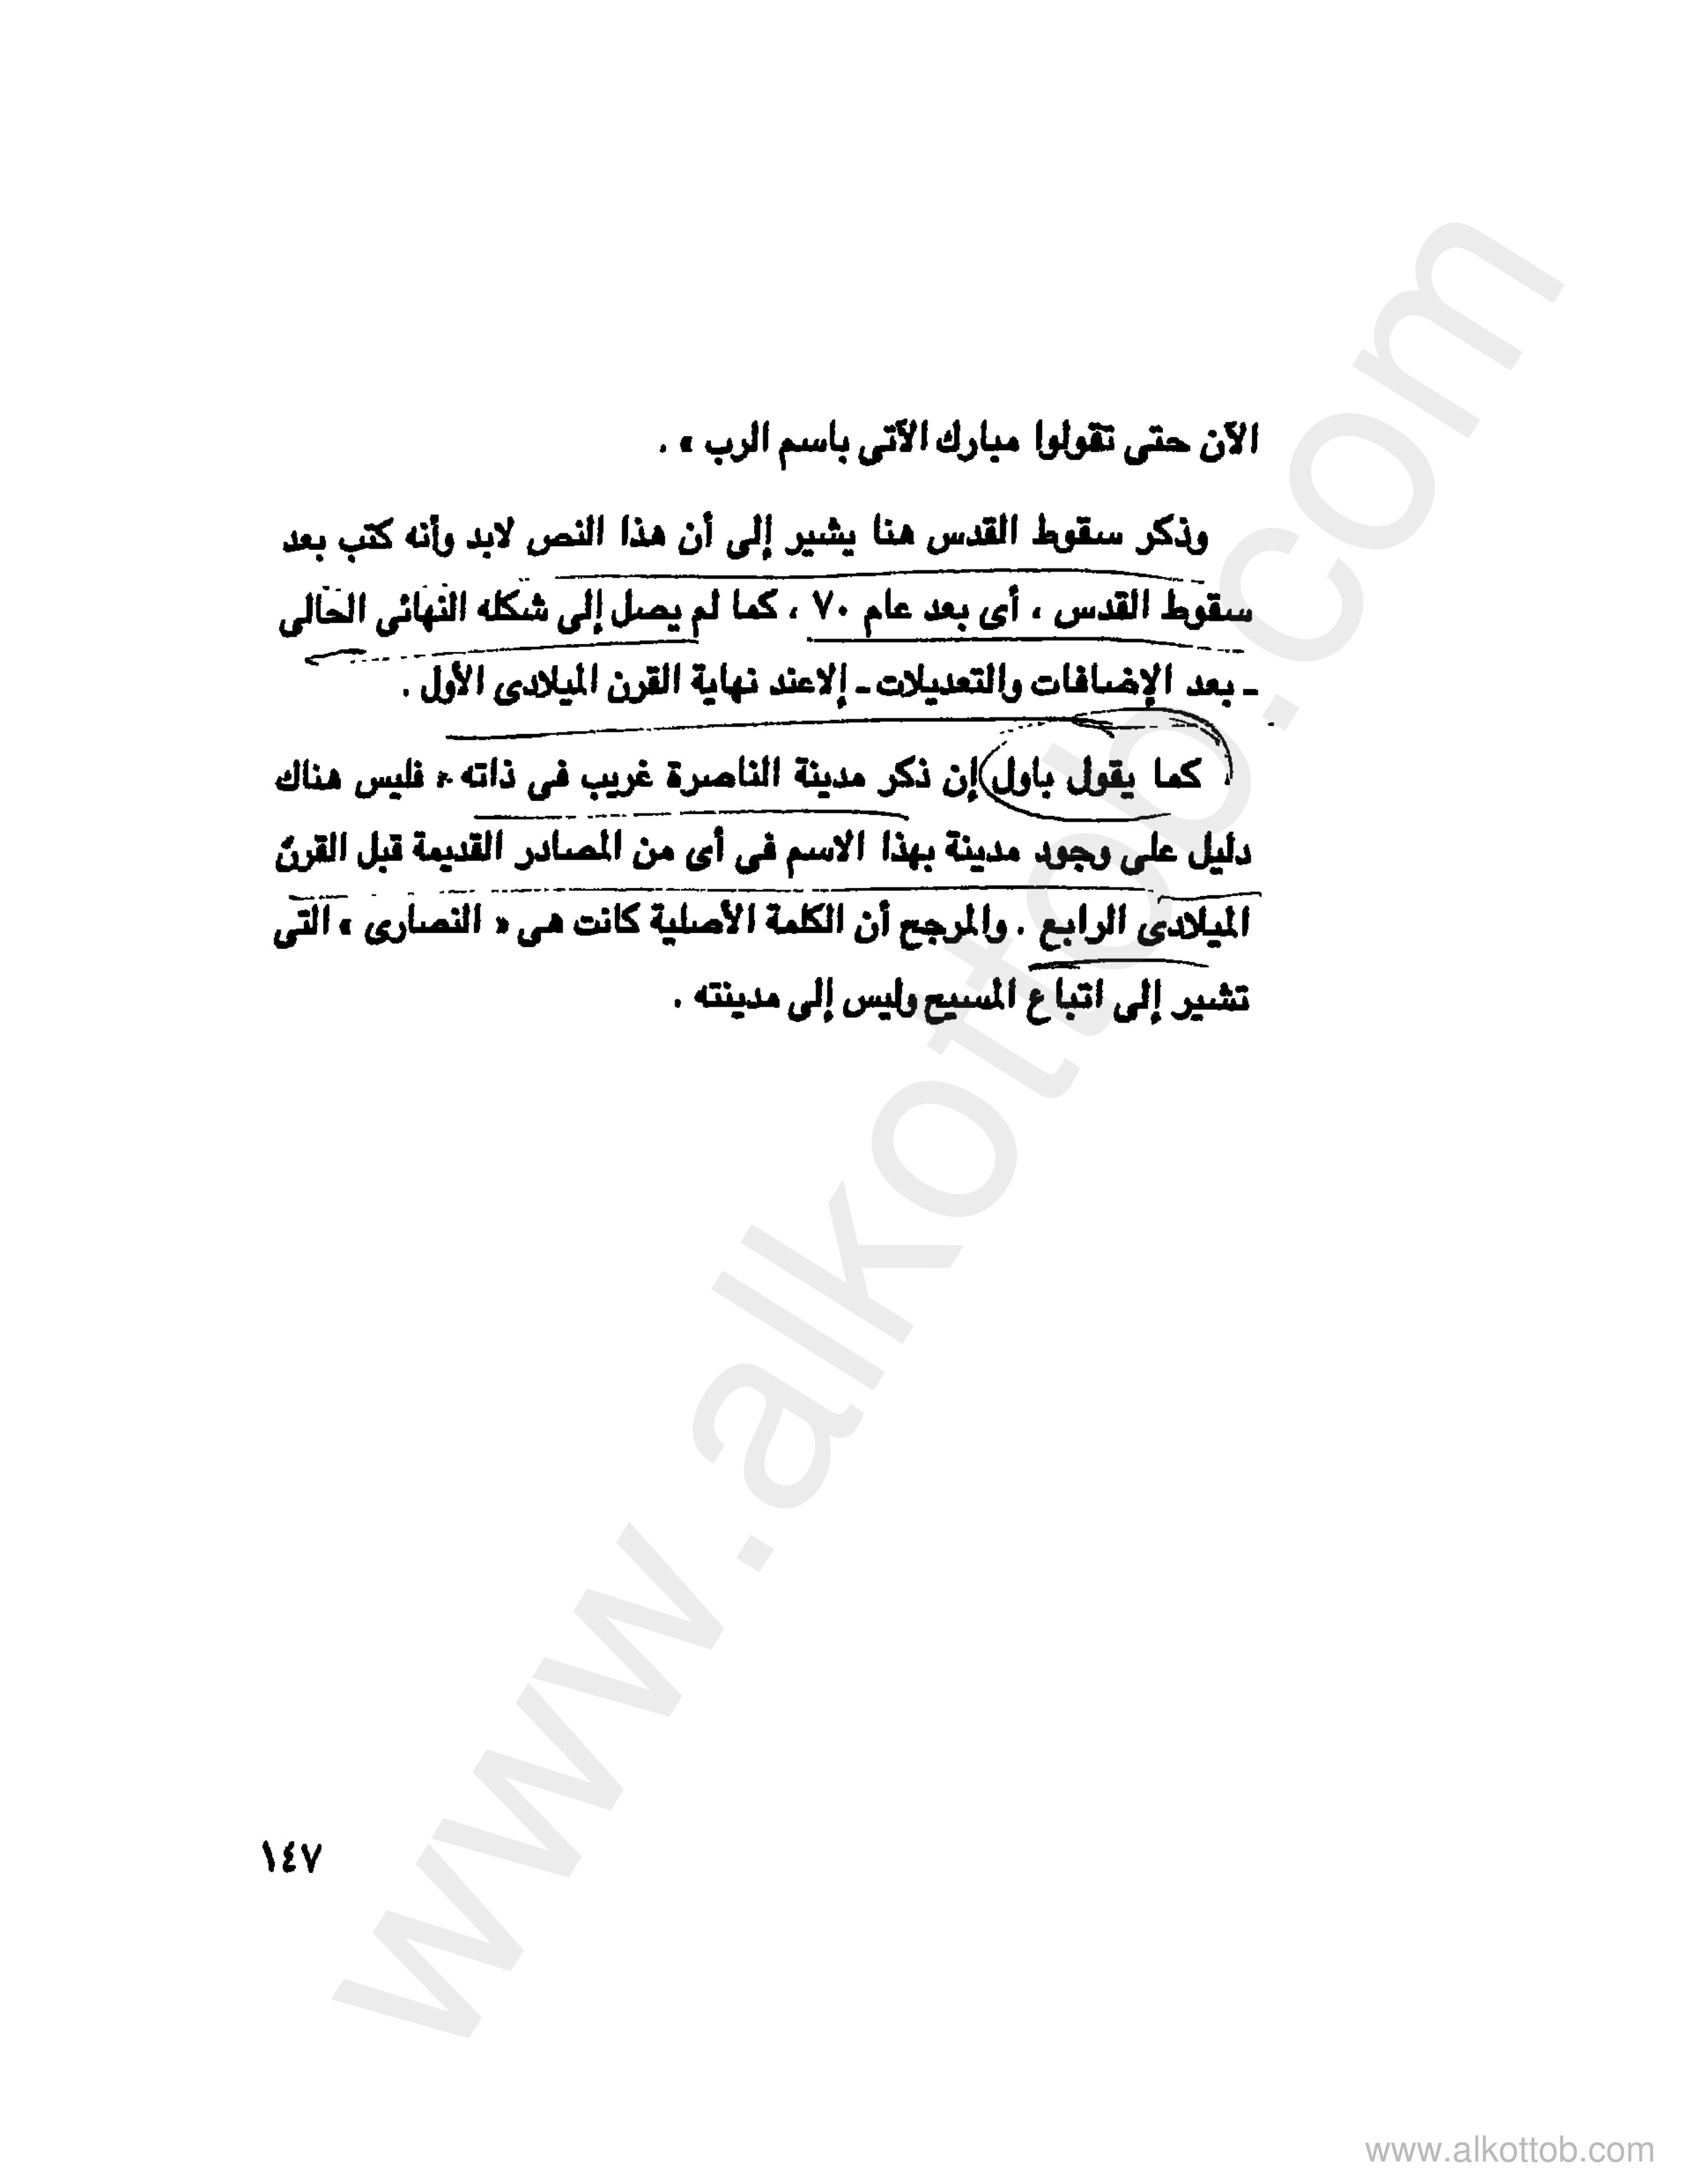 الآن حتى تقولوا مبارك الآتى باسم الرب » .
وذكر سقوط القدس هنا يشير إلى أن هذا النص لابد وأنه كتب بعد
سقوط القدس ، أى بعد عام ٧٠ ، كما لم يصل إلى شكله النهائى الحالى
ـ بعد الإضافات والتعديلات ـ إلاعند نهاية القرن الميلادى الأول .
كما يقول باول إن ذكر مدينة الناصرة غريب فى ذاته ، فليس هناك
دليل على وجود مدينة بهذا الاسم فى أى من المصادر القديمة قبل القرن
الميلادى الرابع . والمرجح أن الكلمة الأصلية كانت هى « النصارى » التى
تشير إلى اتباع المسيح وليس إلى مدينته .
١٤٧
www.alkottob.com
www.alkottob.com